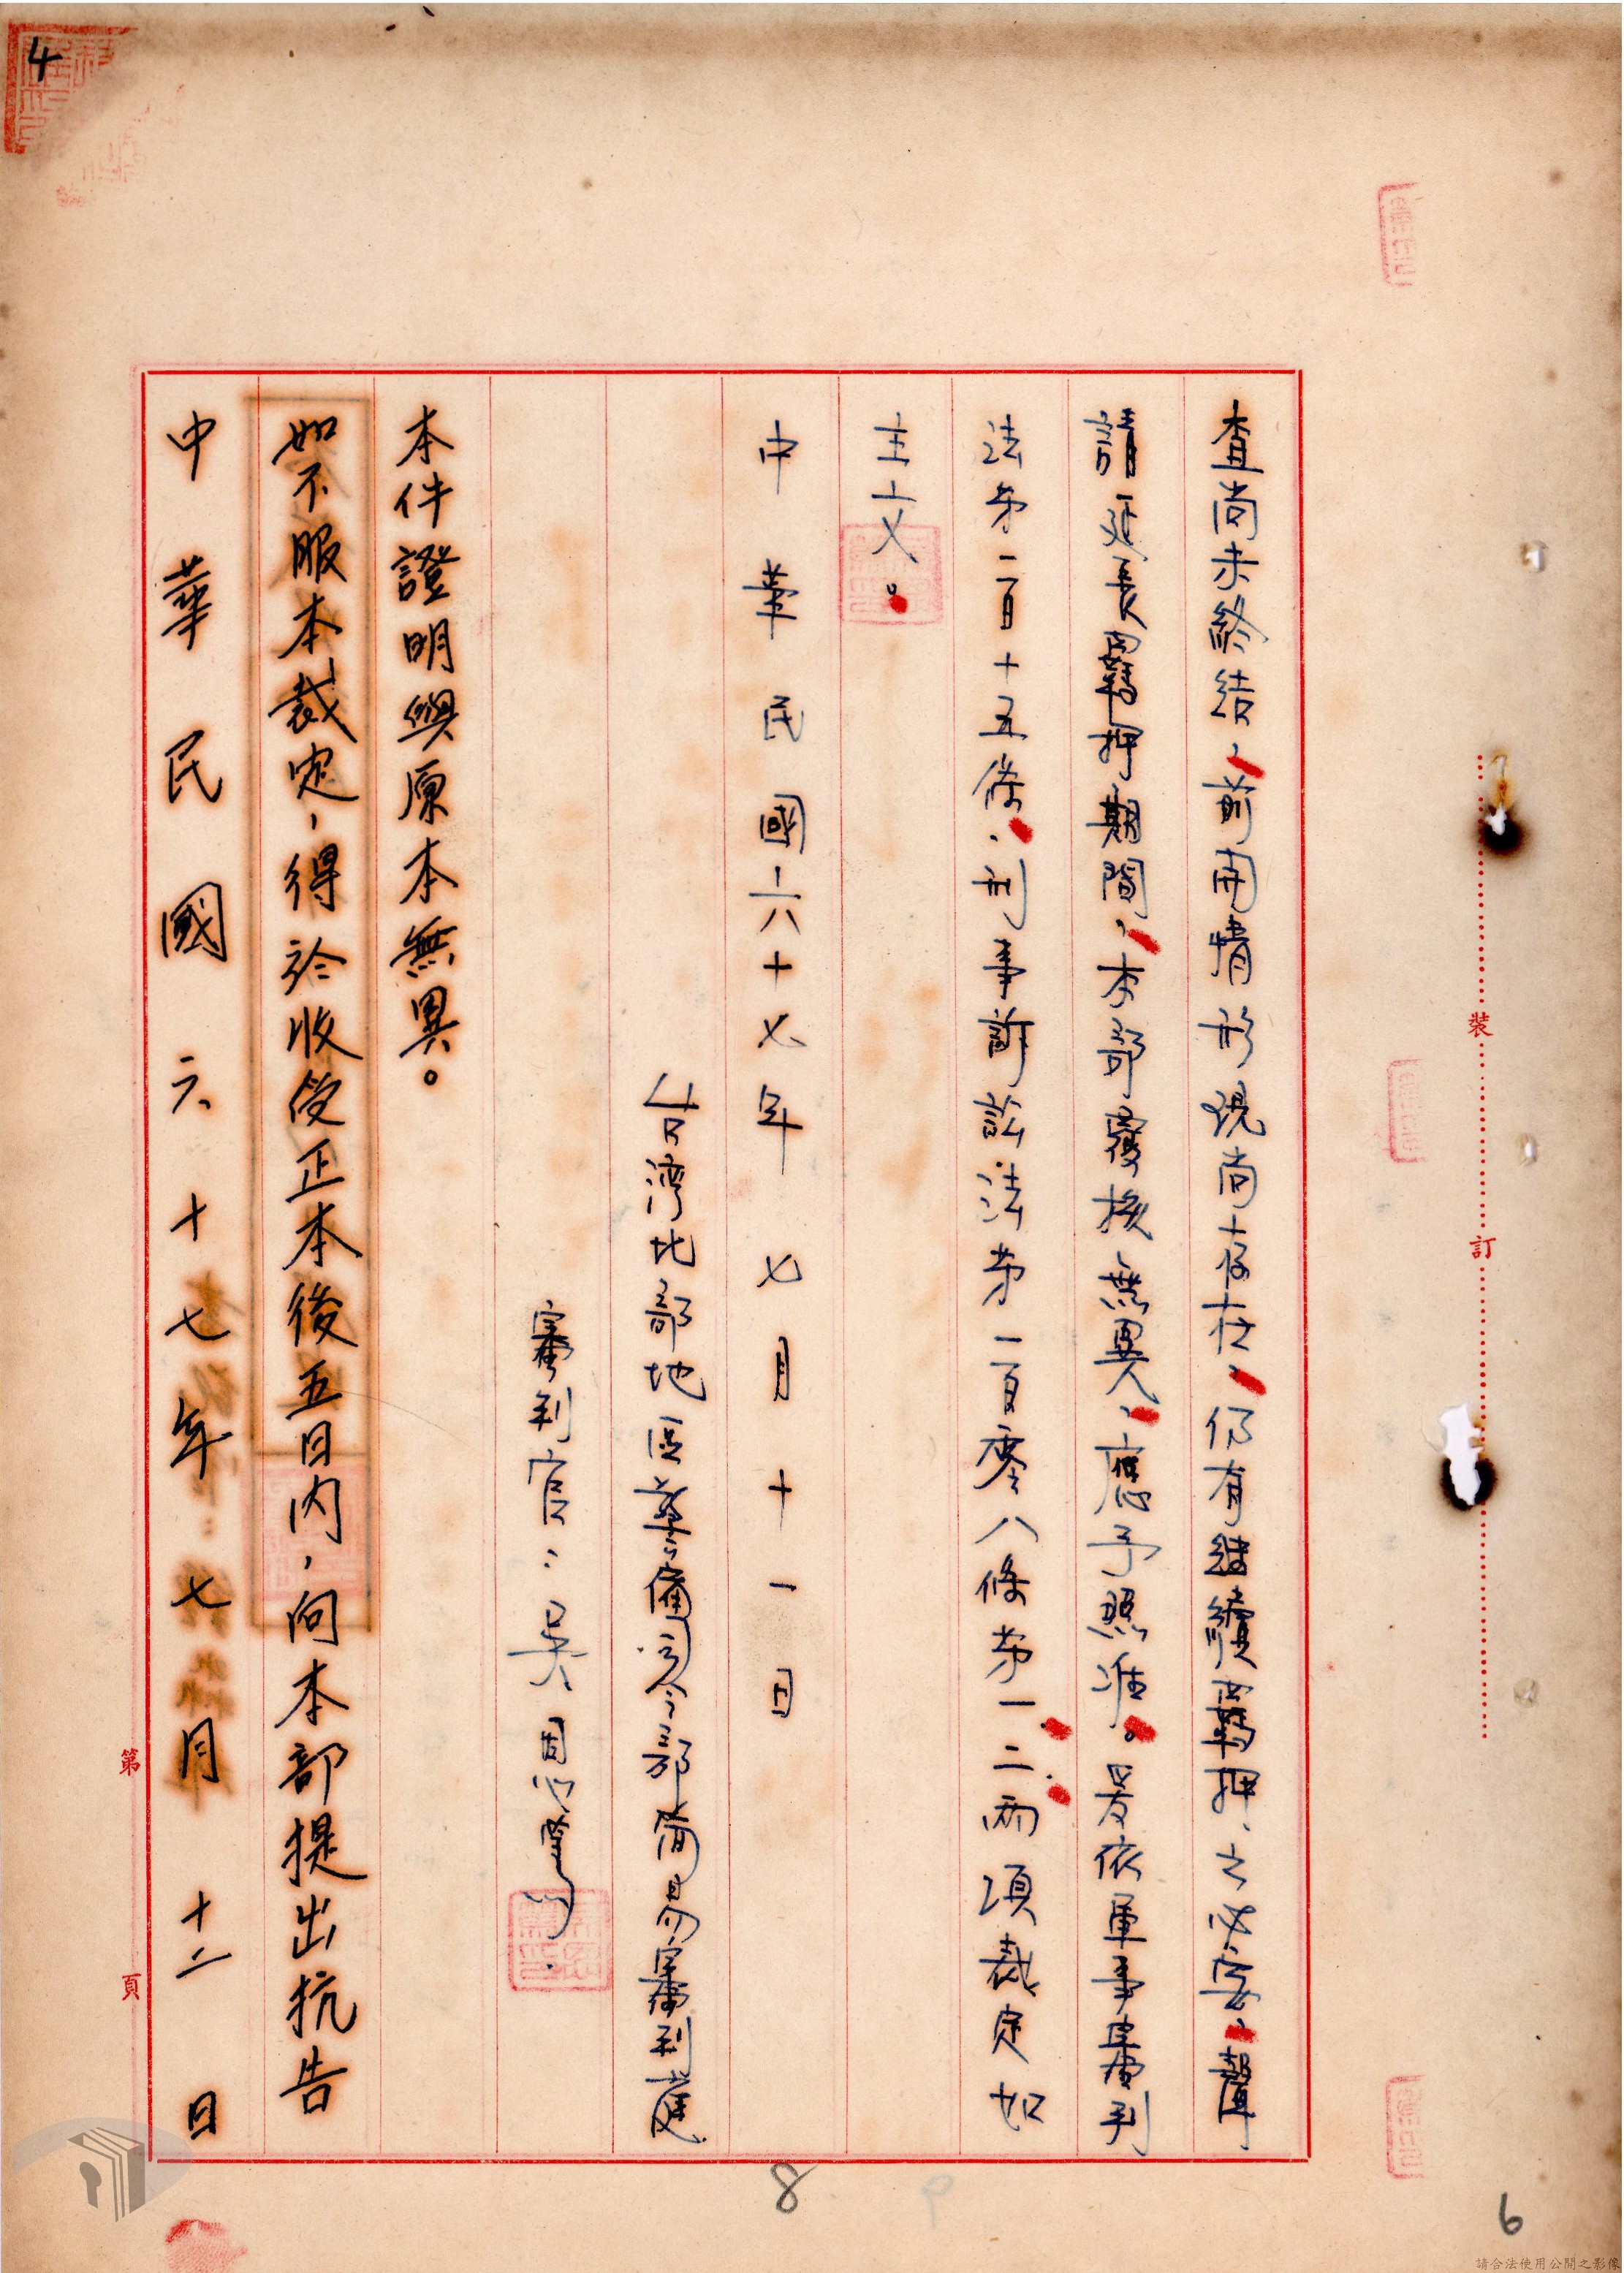 查尚未終結，前開情形現尚存在，仍有繼續羈押之必要，聲
請延長羈押期間，本部覆核無異，應予照准。爰依軍事審判
法第二百十五條，刑事訴訟法第一百零八條第一、二兩項裁定如
主文。
中華民國六十七年七月十一日
台灣北部地區警備司令部簡易審判庭
審判官：吳
本件證明與原本無異。
如不服本裁定，得於收受正本後五日內，向本部提出抗告
中華民國六十七年七月十二日
裝
訂
第
頁
4
8
6
請合法使用公開之影像